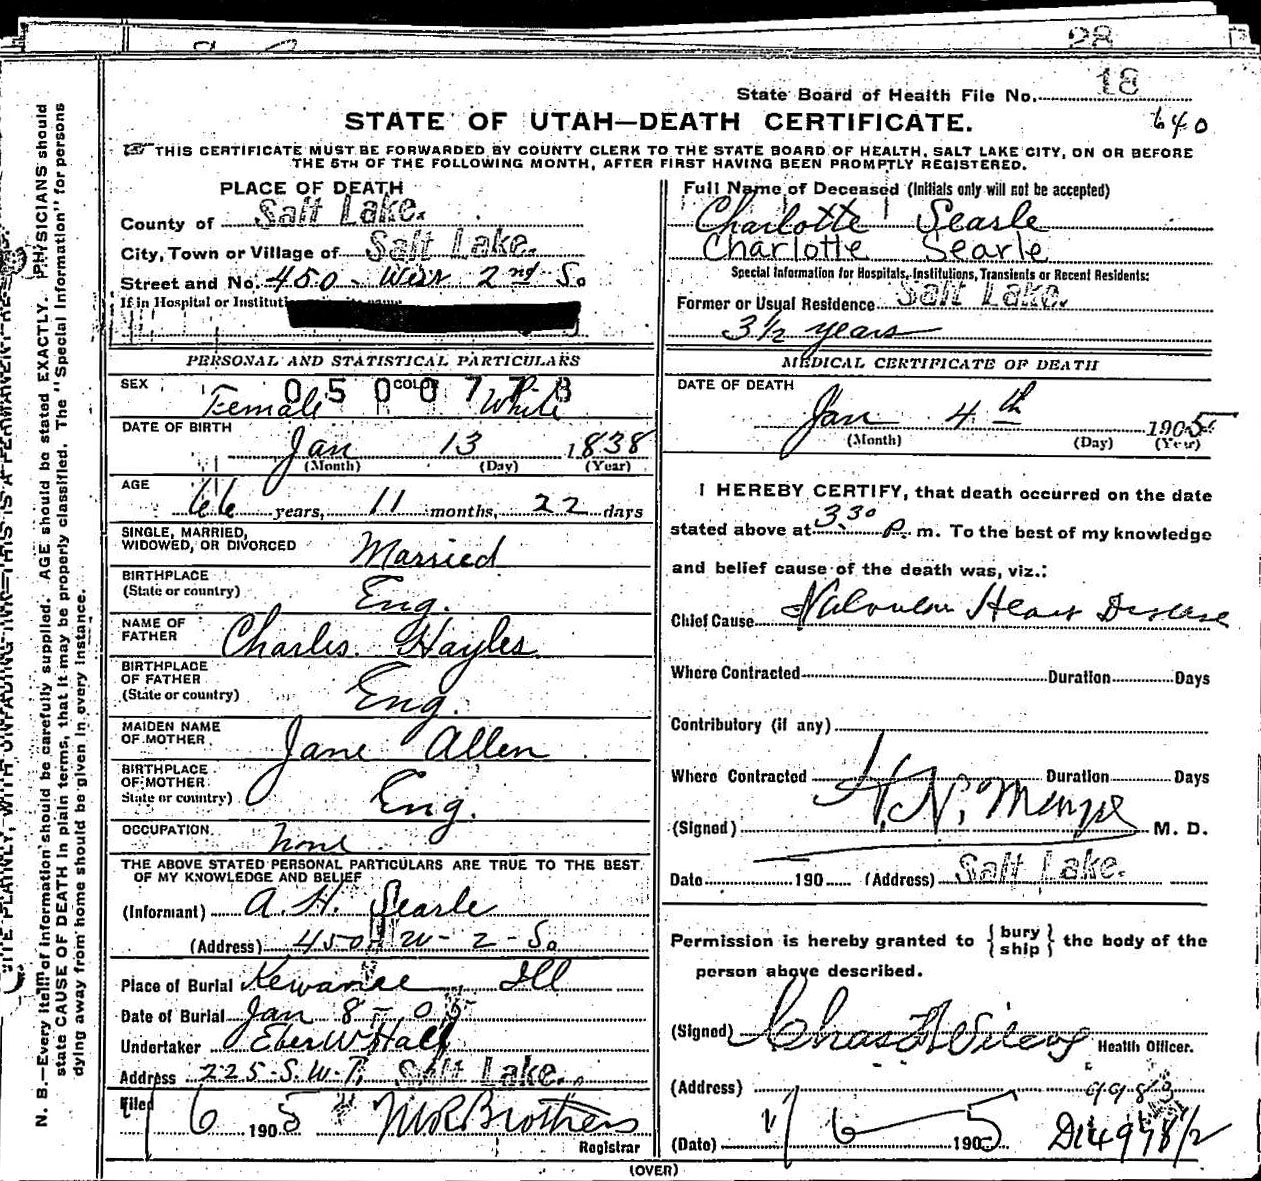 28
State Board of Health File No. 18
STATE OF UTAH—DEATH CERTIFICATE.
640
THIS CERTIFICATE MUST BE FORWARDED BY COUNTY CLERK TO THE STATE BOARD OF HEALTH, SALT LAKE CITY, ON OR BEFORE
THE 5TH OF THE FOLLOWING MONTH, AFTER FIRST HAVING BEEN PROMPTLY REGISTERED.
PLACE OF DEATH
County of Salt Lake.
City, Town or Village of Salt Lake.
Street and No. 450 - West 2nd So
If in Hospital or
PERSONAL AND STATISTICAL PARTICULARS
SEX Female COLOR White
0500773
DATE OF BIRTH
Jan 13 1838
(Month) (Day) (Year)
AGE
66 years, 11 months, 22 days
SINGLE, MARRIED,
WIDOWED, OR DIVORCED Married
BIRTHPLACE
(State or country) Eng.
NAME OF
FATHER Charles Hayles
BIRTHPLACE
OF FATHER
(State or country) Eng.
MAIDEN NAME
OF MOTHER Jane Allen
BIRTHPLACE
OF MOTHER
State or country) Eng.
OCCUPATION None
THE ABOVE STATED PERSONAL PARTICULARS ARE TRUE TO THE BEST
OF MY KNOWLEDGE AND BELIEF
(Informant) A. H. Searle
(Address) 450 W - 2 - So
Place of Burial Kewanee Ill
Date of Burial Jan 8 - 05
Undertaker Eber W Hall
Address 225-S. W-T. Salt Lake.
Filed 1/6 1905 Brothers
Registrar
Full Name of Deceased (Initials only will not be accepted)
Charlotte Searle
Charlotte Searle
Special Information for Hospitals, Institutions, Transients or Recent Residents:
Former or Usual Residence Salt Lake.
3½ years
MEDICAL CERTIFICATE OF DEATH
DATE OF DEATH
Jan 4th 1905
(Month) (Day) (Year)
I HEREBY CERTIFY, that death occurred on the date
stated above at 3.30 P. m. To the best of my knowledge
and belief cause of the death was, viz.:
Chief Cause Valvular Heart Disease
Where Contracted Duration Days
Contributory (if any)
Where Contracted Duration Days
(Signed) M. D.
Date 190 (Address) Salt Lake.
Permission is hereby granted to {bury ship} the body of the
person above described.
(Signed) Chas Health Officer.
(Address)
(Date) 1/6 1905 D14978½
(OVER)
N. B.—Every item of information should be carefully supplied. AGE should be stated EXACTLY. PHYSICIANS should
state CAUSE OF DEATH in plain terms, that it may be properly classified. The "Special Information" for persons
dying away from home should be given in every instance.
WRITE PLAINLY, WITH UNFADING INK—THIS IS A PERMANENT